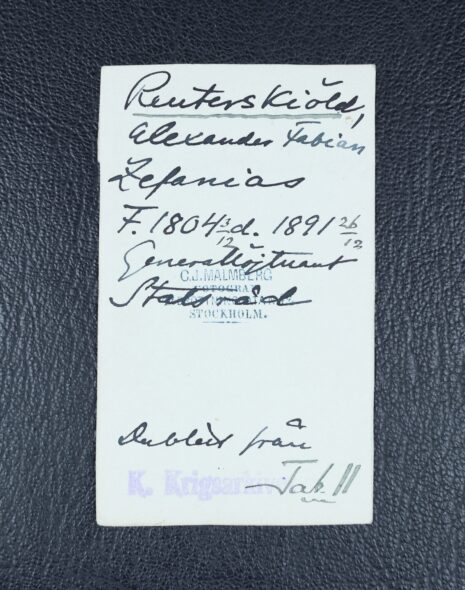 Reuterskiöld,
Alexander Fabian
Zefanias
F. 1804 3/12 d. 1891 26/12
Generallöjtnant
C.J. MALMBERG
Statsråd
FOTOGRAF
STOCKHOLM.
Dublett från
K. Krigsarkivet
Tab. 11